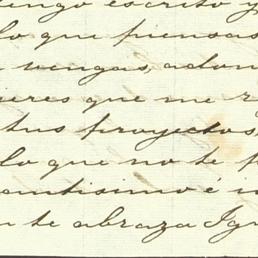 engo escrito y
lo que piensas
vengas, adon
ieres que me
tus proyectos,
lo que no te
antisimo é
te abraza Ign